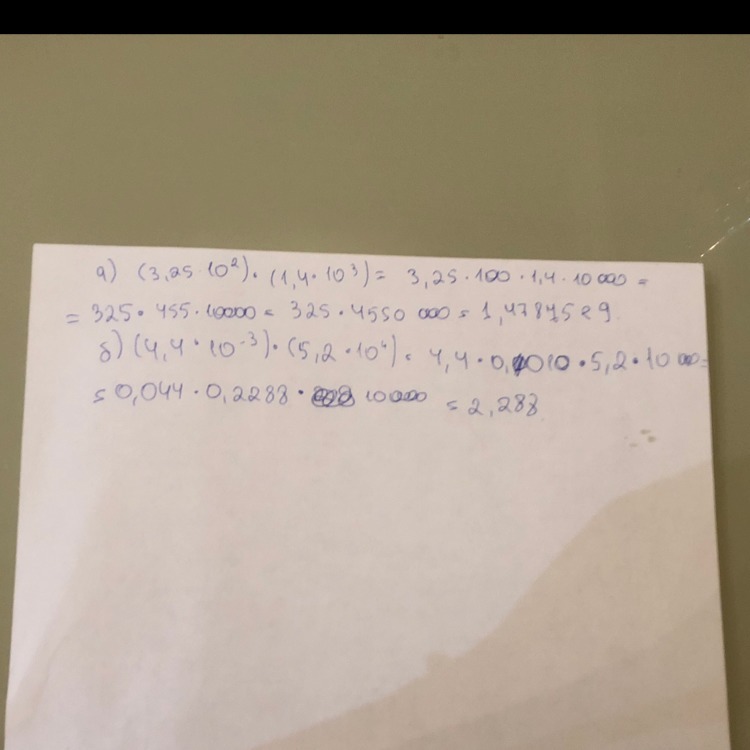 а) (3,25·10²)·(1,4·10³) = 3,25·100·1,4·10 000 =
= 325·455·10000 = 325·4550 000 = 1,47875 e 9.
б) (4,4·10⁻³)·(5,2·10⁴) = 4,4·0,010·5,2·10 000 =
= 0,044·0,2288· 10000 = 2,288